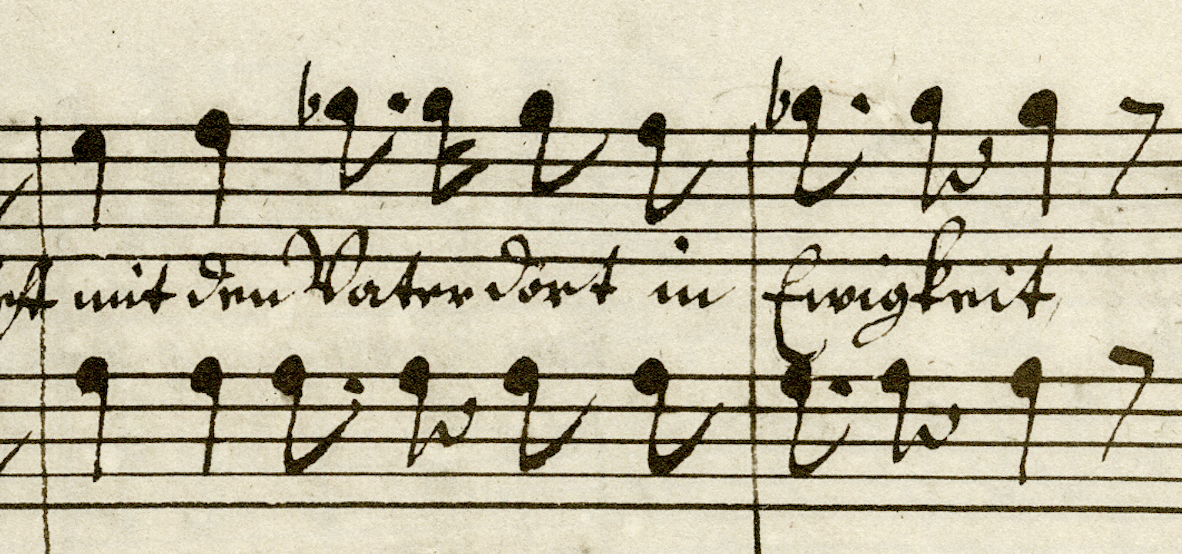 mit den Vater dort in Ewigkeit